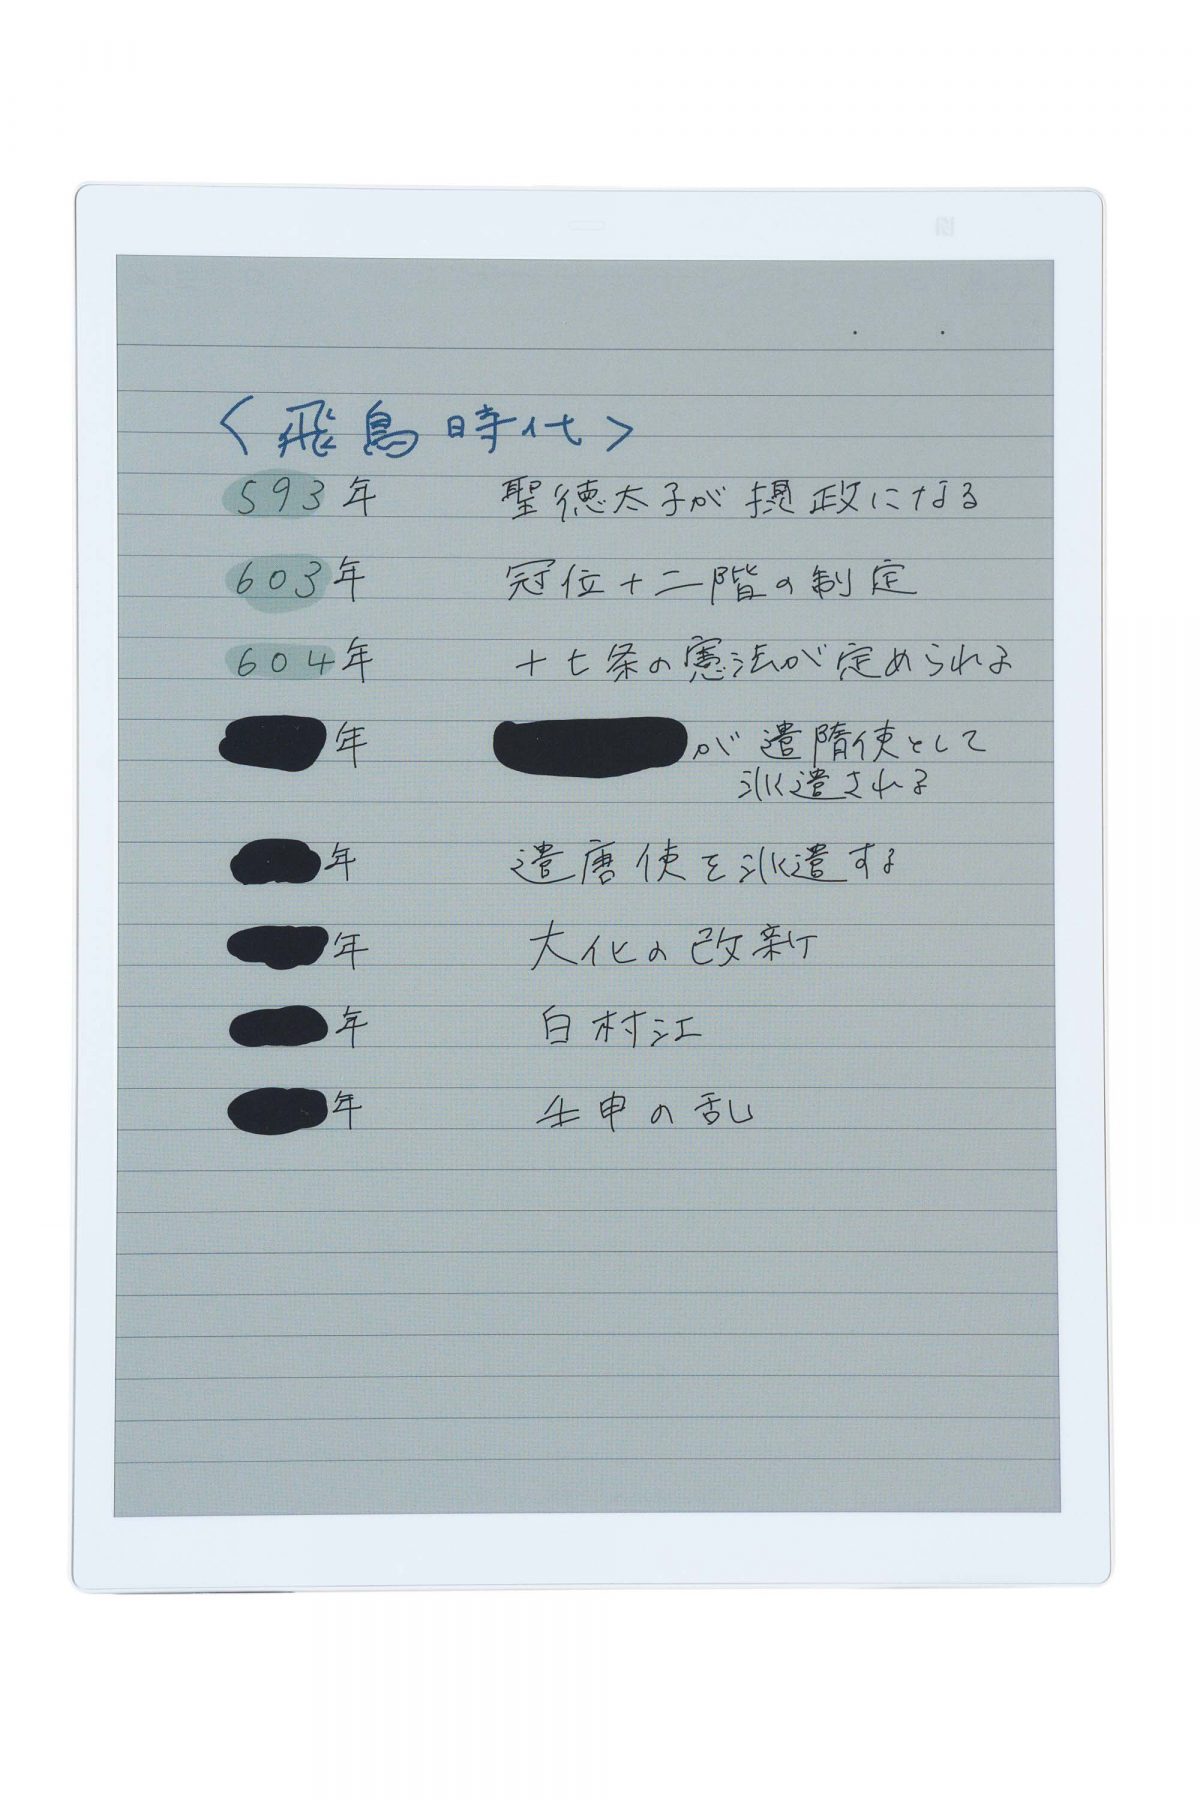 <飛鳥時代>
593年 聖徳太子が摂政になる
603年 冠位十二階の制定
604年 十七条の憲法が定められる
年 が遣隋使として
派遣される
年 遣唐使を派遣する
年 大化の改新
年 白村江
年 壬申の乱